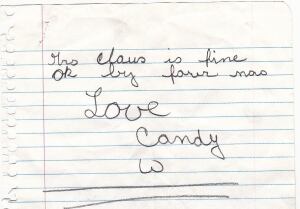 Mrs Claus is fine
OK by for now
Love
Candy
W